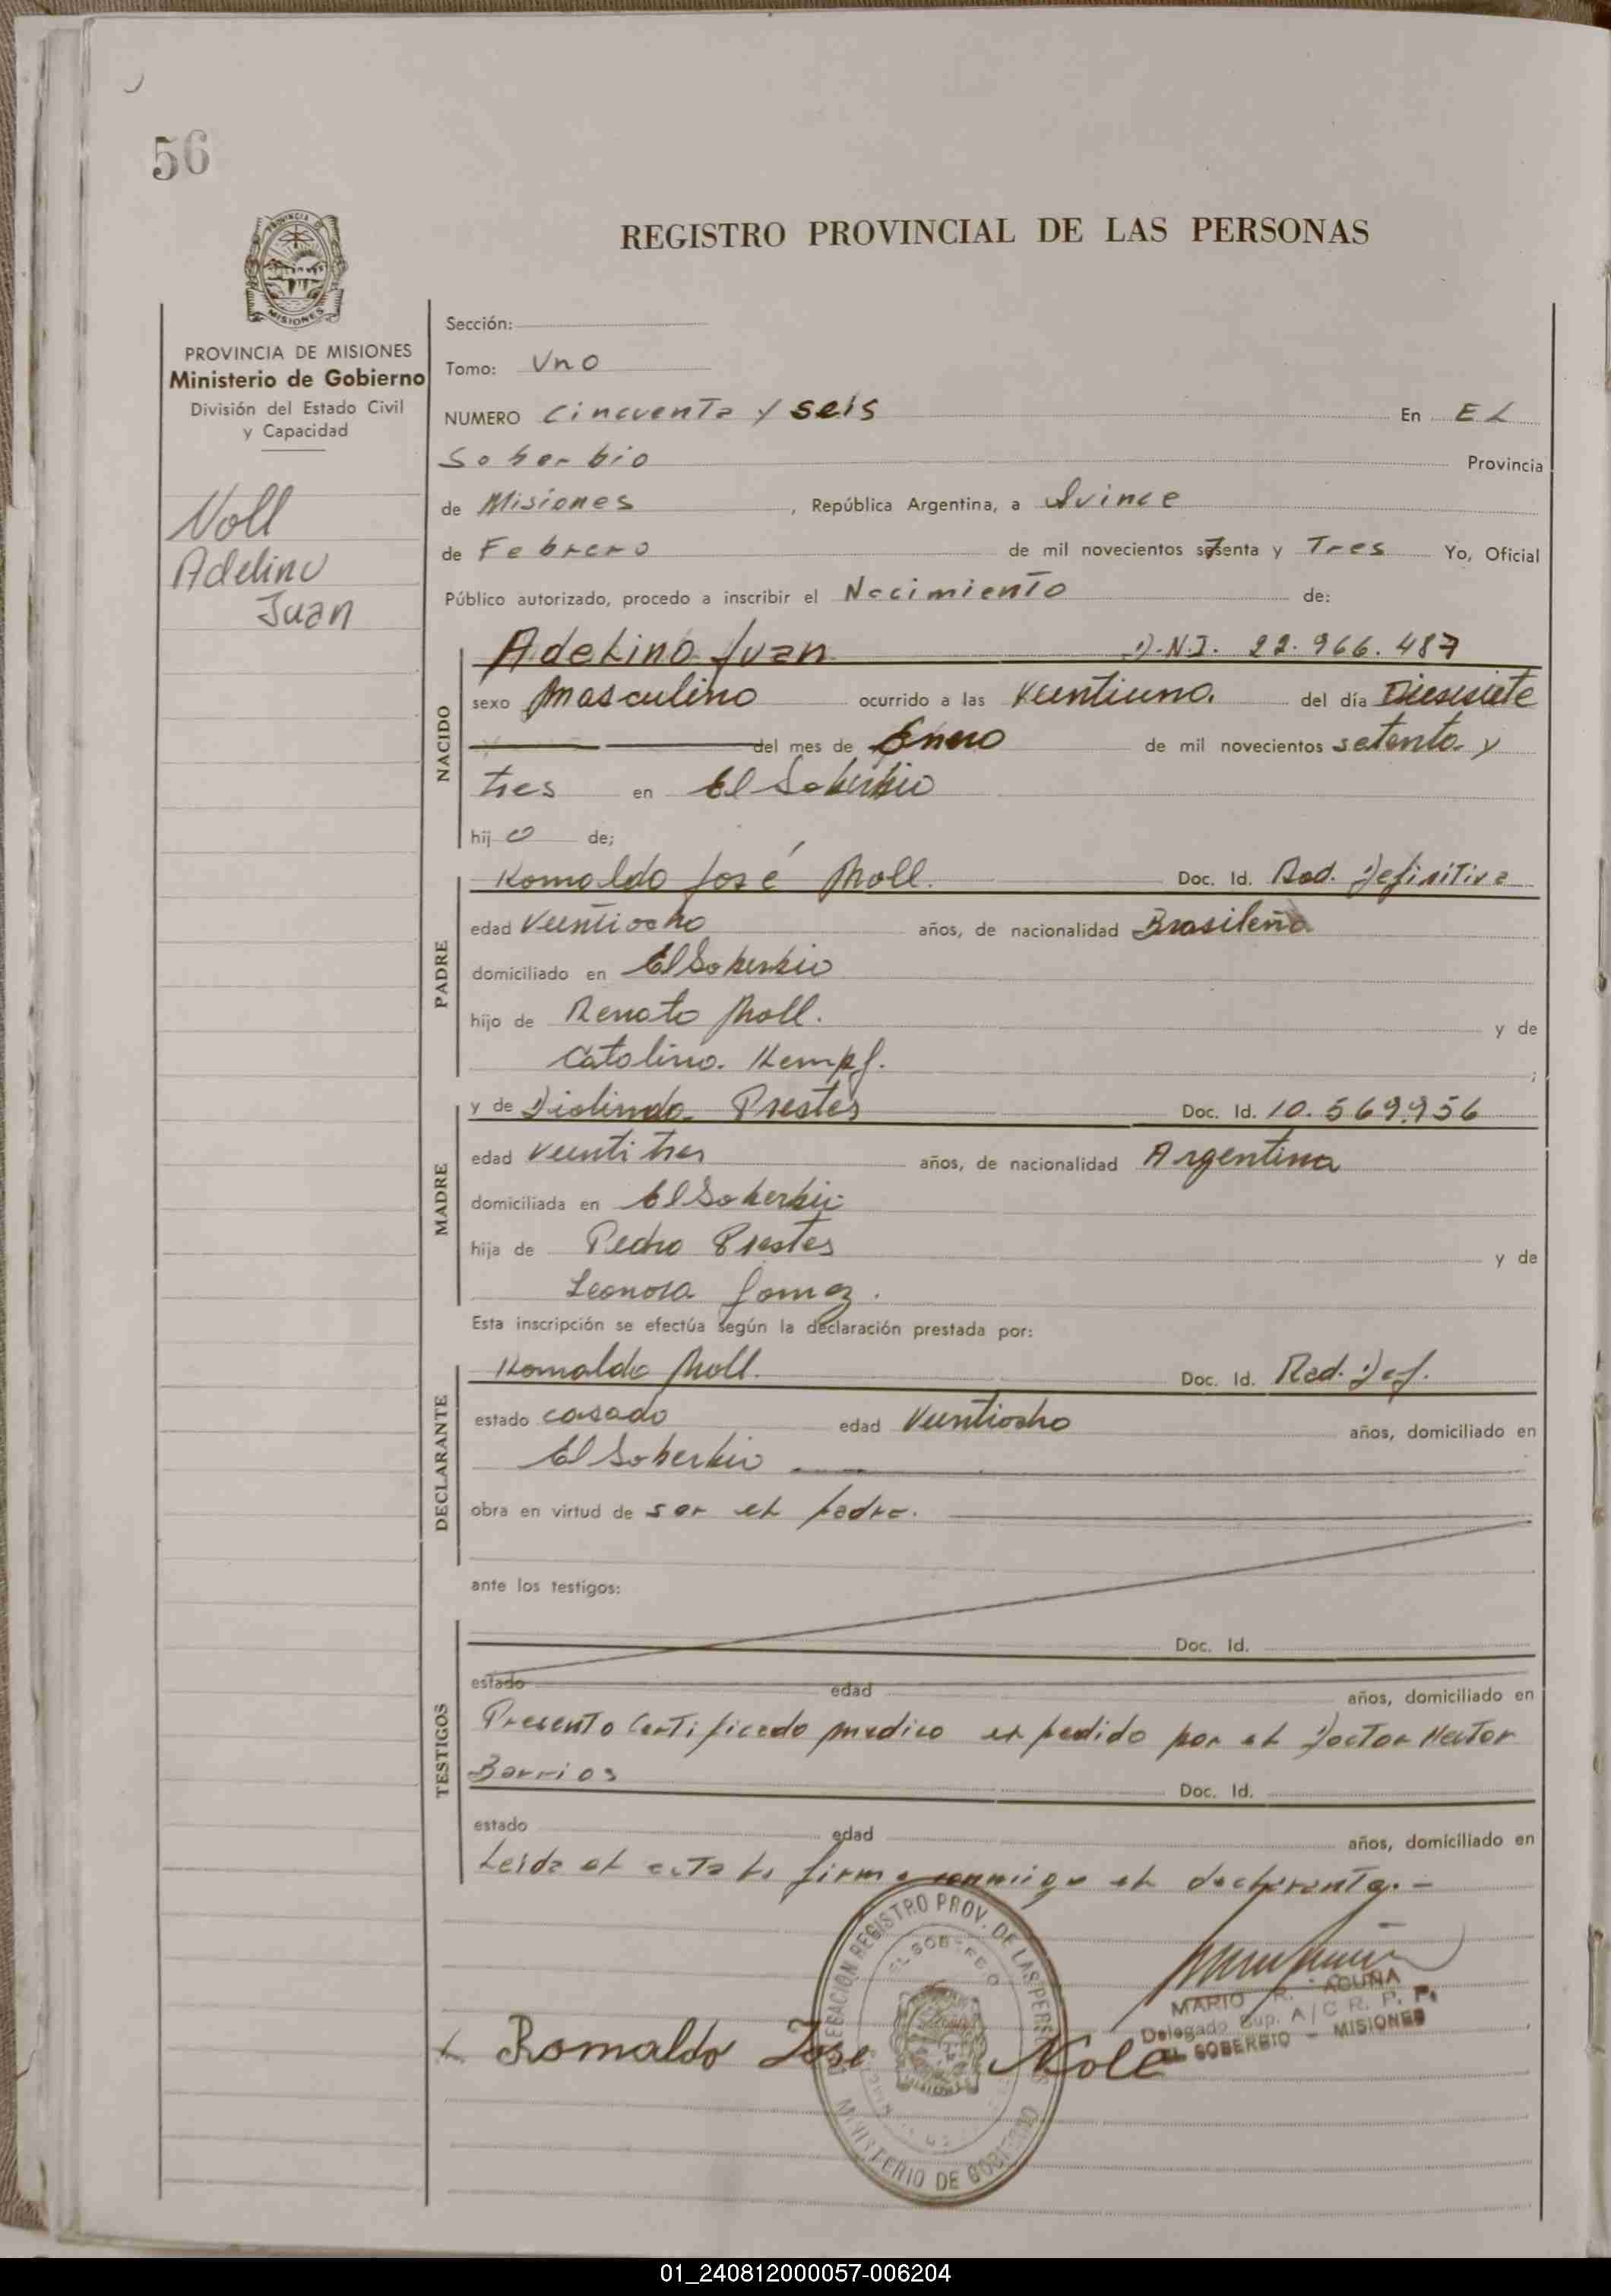 56
REGISTRO PROVINCIAL DE LAS PERSONAS
PROVINCIA
MISIONES
PROVINCIA DE MISIONES
Ministerio de Gobierno
División del Estado Civil
y Capacidad
Noll
Adelino
Juan
Sección:
Tomo: Uno
NUMERO Cincuenta y seis En EL
Soberbio Provincia
de Misiones, República Argentina, a Quince
de Febrero de mil novecientos setenta y Tres Yo, Oficial
Público autorizado, procedo a inscribir el Nacimiento de:
NACIDO
Adelino Juan D.N.I. 22.966.487
sexo Masculino ocurrido a las veintiuna. del día Diesisiete
del mes de Enero de mil novecientos setenta y
tres en El Soberbio
hijo de;
PADRE
Romaldo José Noll. Doc. Id. Rad. Definitiva
edad Veintiocho años, de nacionalidad Brasileña
domiciliado en El Soberbio
hijo de Renato Noll. y de
Catalina Kempf. ;
MADRE
y de Diolinda Prestes Doc. Id. 10.569.956
edad veintitres años, de nacionalidad Argentina
domiciliada en El Soberbio
hija de Pedro Prestes y de
Leonora Gomez.
Esta inscripción se efectúa según la declaración prestada por:
DECLARANTE
Romaldo Noll. Doc. Id. Rad. Def.
estado casado edad Veintiocho años, domiciliado en
El Soberbio
obra en virtud de ser el padre.
ante los testigos:
TESTIGOS
Doc. Id.
estado edad años, domiciliado en
Presento Certificado medico expedido por el Doctor Hector
Barrios Doc. Id.
estado edad años, domiciliado en
Leida el acta la firma conmigo el declarante.-
DELEGACION REGISTRO PROV. DE LAS PERSONAS
EL SOBERBIO
MISIONES
MINISTERIO DE GOBIERNO
MARIO R. ACUÑA
Delegado Sup. A/C R. P. P.
EL SOBERBIO - MISIONES
Romaldo Jose Noll
01_240812000057-006204